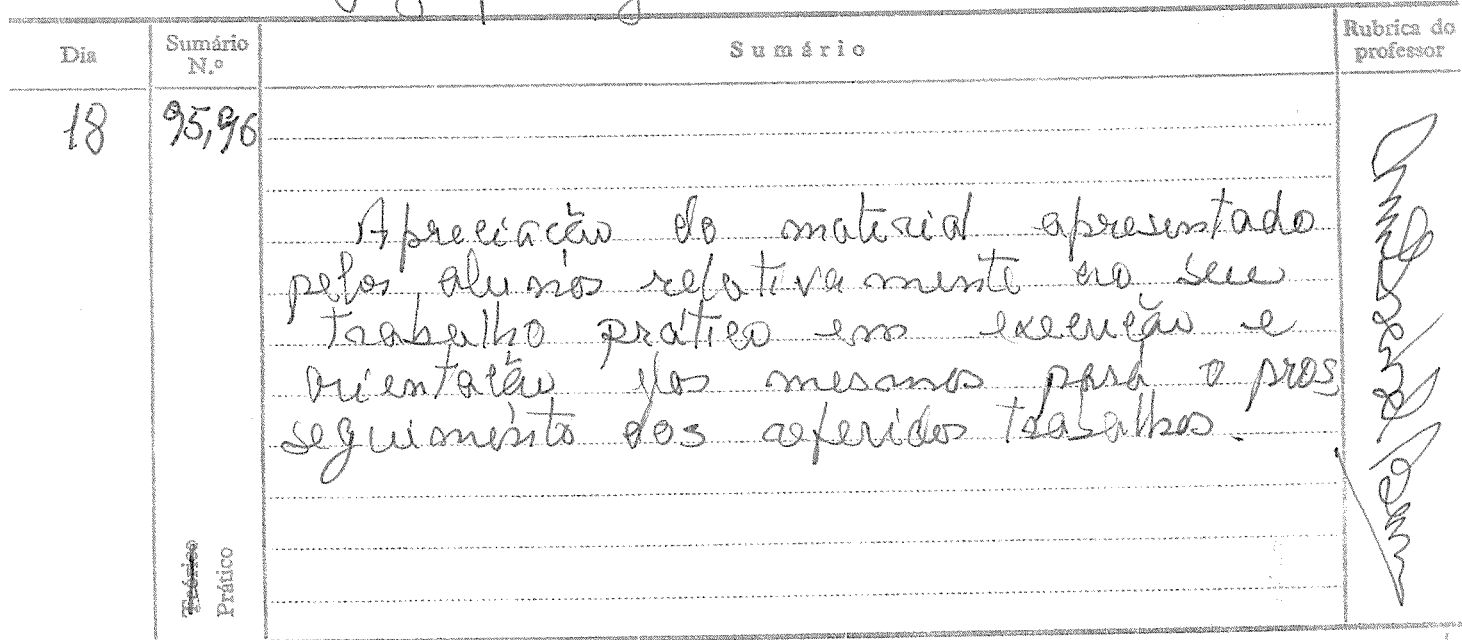 Dia
Sumário
N.º
Sumário
Rubrica do
professor
18
95,96
Apreciação do material apresentado
pelos alunos relativamente ao seu
trabalho prático em execução e
orientação dos mesmos para o pros
seguimento dos referidos trabalhos.
Teórico
Prático